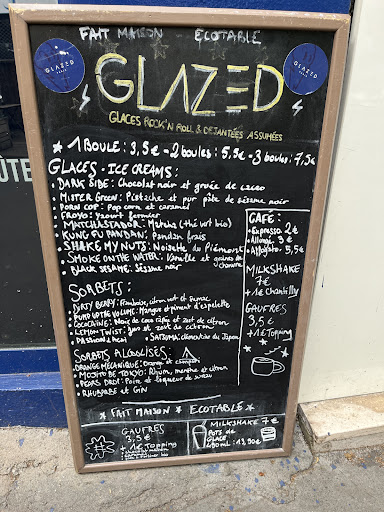 FAIT MAISON ECOTABLE
GLAZED
PARIS
GLAZED
PARIS
GLAZED
GLACES ROCK'N ROLL & DEJANTÉES ASSUMÉES
★ 1 BOULE: 3,5€ = 2 boules: 5,5€ = 3 boules: 7,5€
GLACES - ICE CREAMS:
• DARK SIDE: Chocolat noir et gruée de cacao
• MISTER GREEN: Pistache et pur pâte de sésame noir
• PORN COP: Pop corn et caramel
• FROYO: Yaourt fermier
• MATCHASTADOR: Matcha (thé vert bio)
• KUNG FU PANDAN: Pandan frais
• SHAKE MY NUTS: Noisette du Piémont
• SMOKE ON THE WATER: Vanille et graines de
• BLACK SESAME: Sésame noir
CAFÉ:
• Espresso 2€
• Allongé 3€
• Affogato 5,5€
MILKSHAKE
7€
+1€ Chantilly
GAUFRES
3,5€
+1€ Topping
SORBETS:
• DIRTY BERRY: Framboise, citron vert et sumac
• PUMP UP THE VOLUME: Mangue et piment d'espelette
• COCOCAÏNE: Noix de coco râpée et zest de citron
• LEMON TWIST: jus et zest de citron
• PASSION 2 MOI • SATSUMA: clémentine du Japon
SORBETS ALCOOLISÉS:
• ORANGE MÉCANIQUE: Orange et campari
• MOJITO DE TOKYO: Rhum, menthe et citron
• PEARS DROP: Poire et liqueur de
• RHUBARBE et GIN
★ FAIT MAISON ★ ECOTABLE ★
GAUFRES
3,5€
+1€ Topping
MILKSHAKE 7€
POTS de
GLACE
480ml: 13,90€